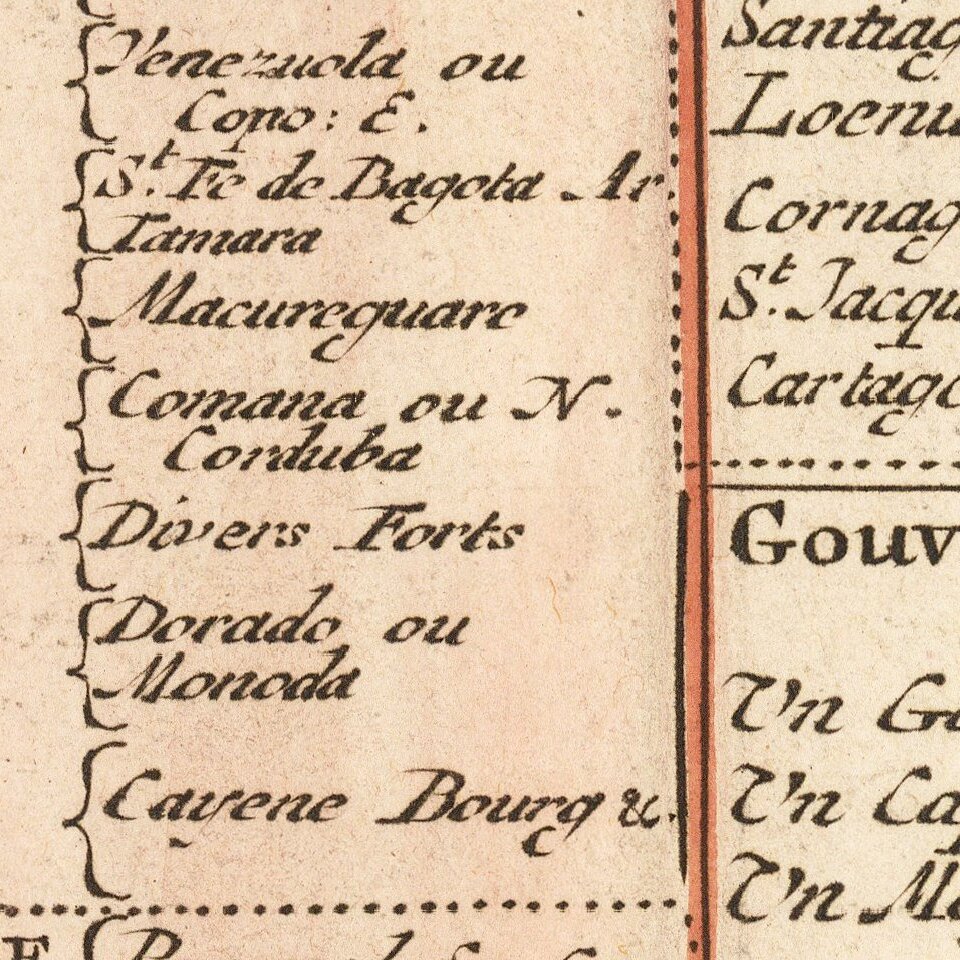 Venezuola ou
Copo: E.
St. Fe de Bagota Ar
Tamara
Macureguare
Comana ou N.
Corduba
Divers Forts
Dorado ou
Monoda
Cayene Bourg &.
E
Santiag
Loenu
Cornag
St. Jacqu
Cartage
Gouv
Un Go
Un Ca
Un Ma